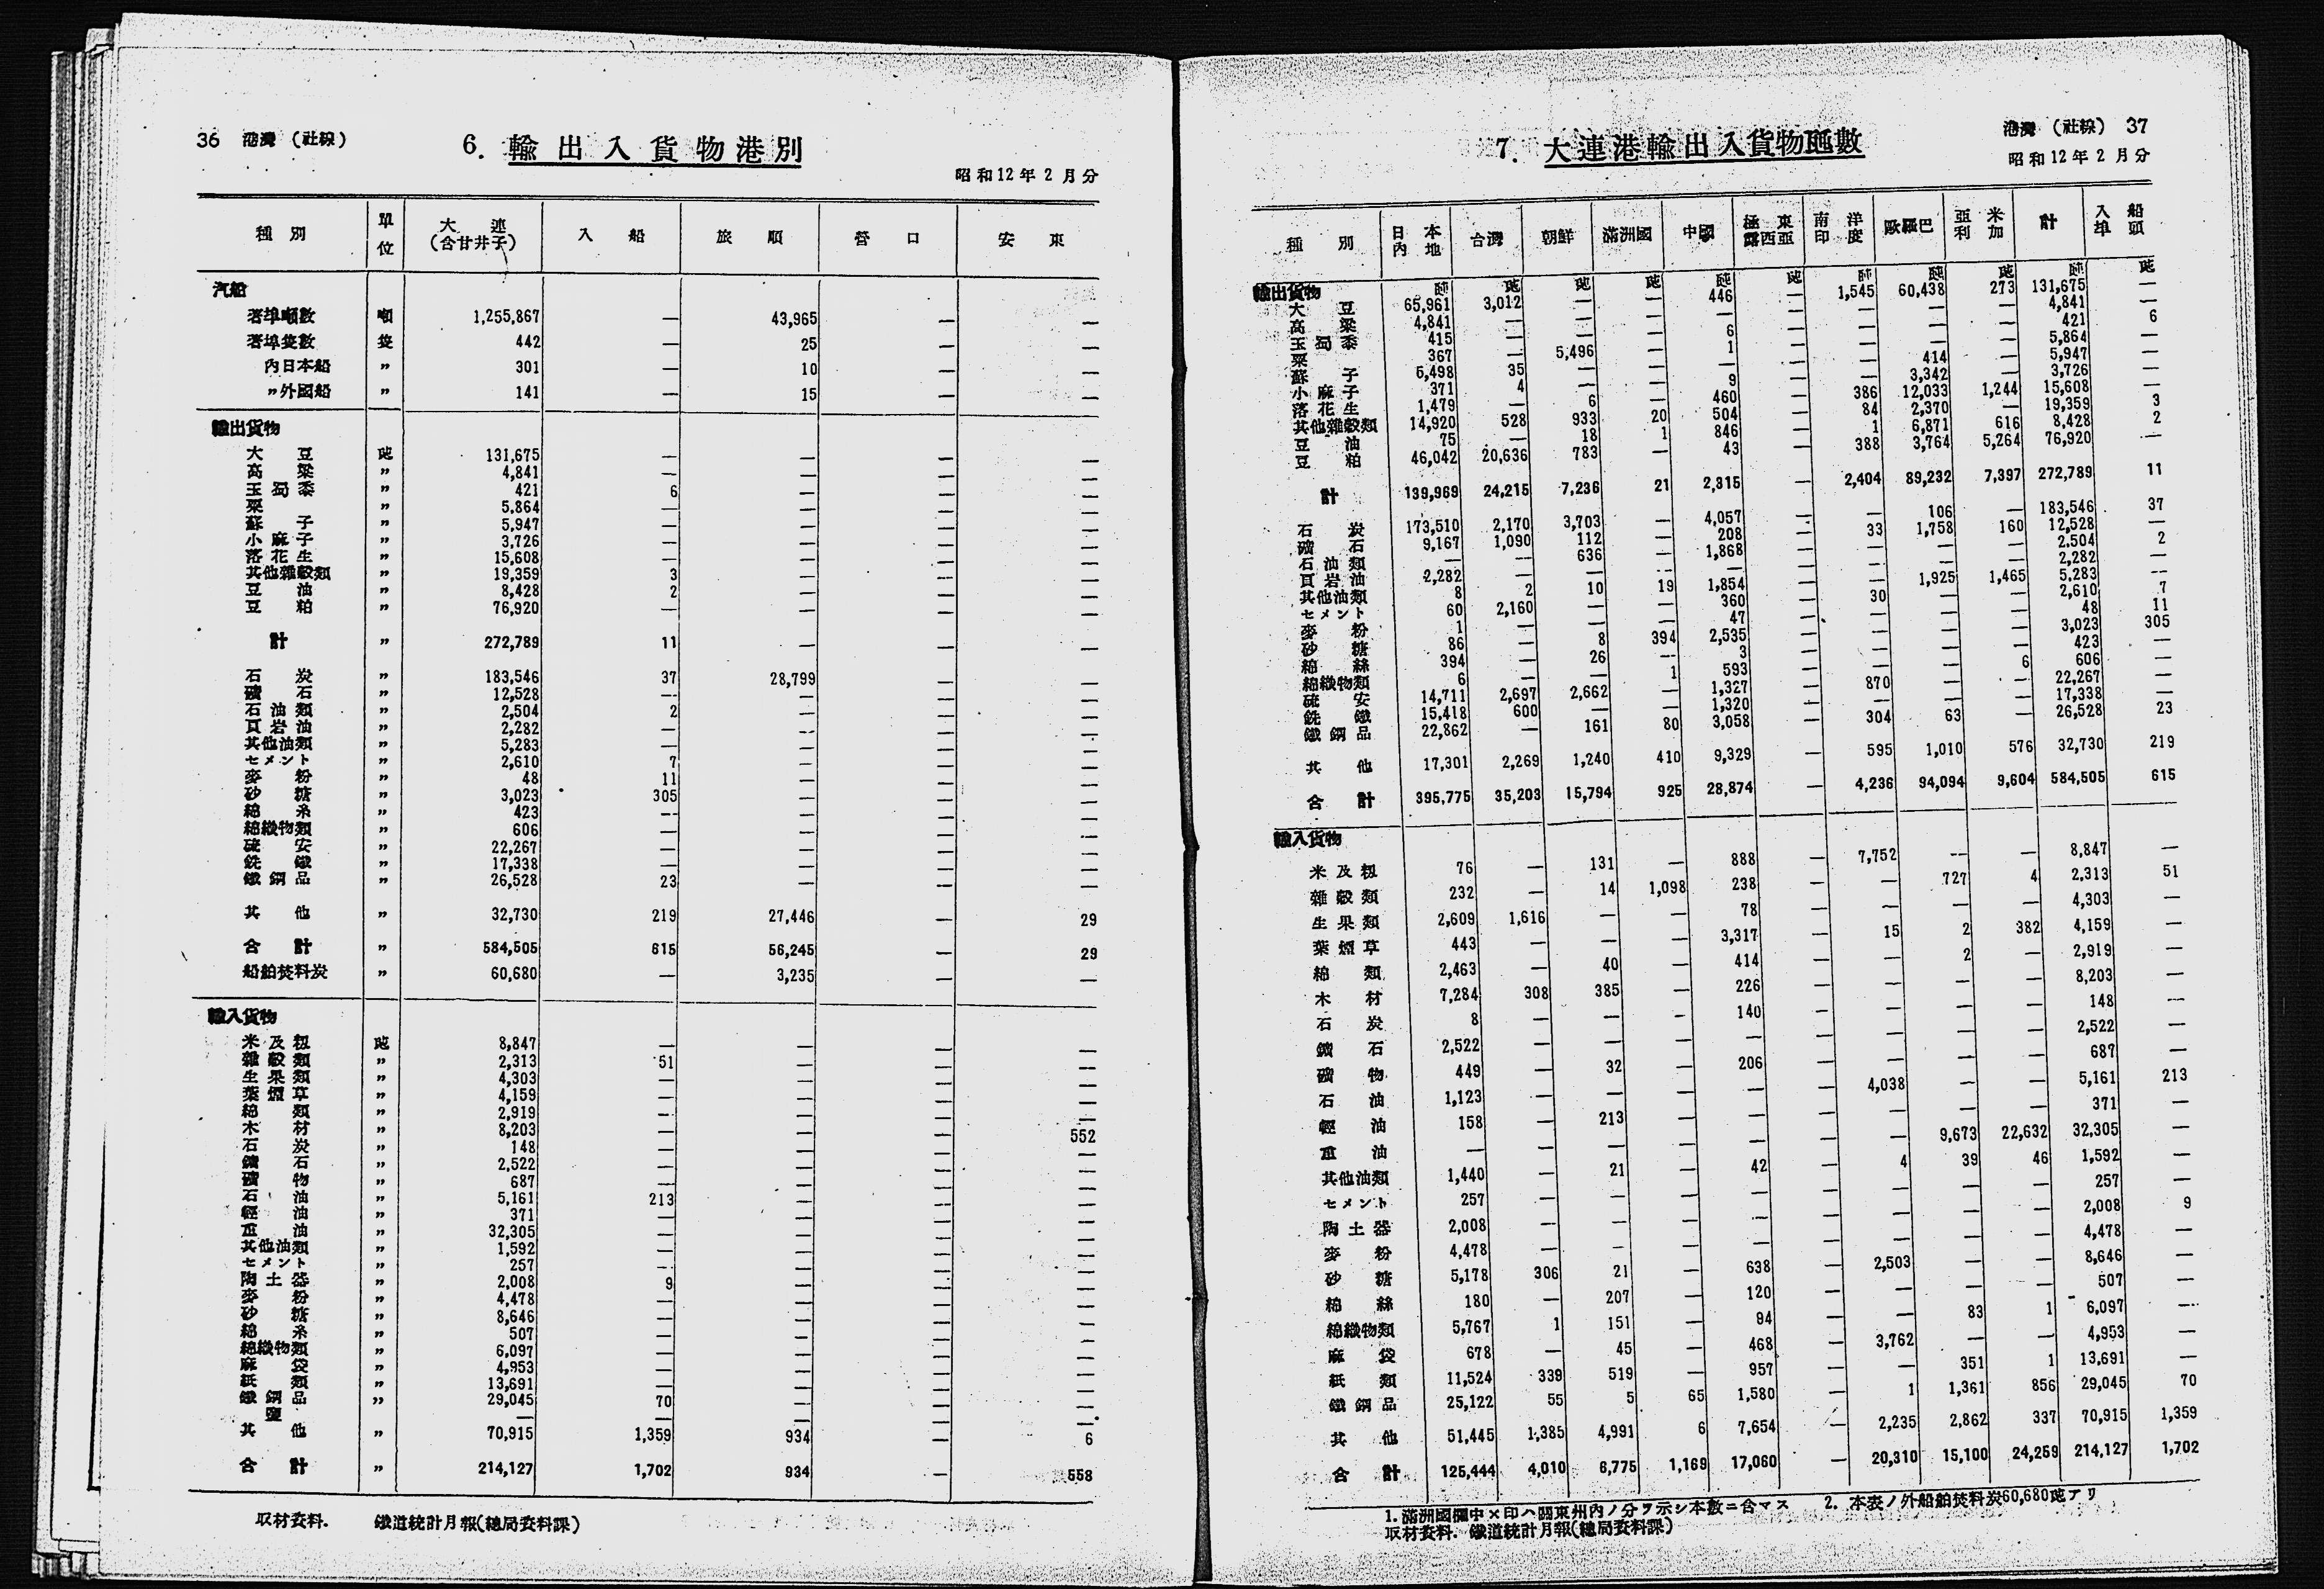 36 港灣 (社線)
6. 輸出入貨物港別
昭和12年2月分
種別 單位 大連(含甘井子) 入船 旅順 營口 安東
汽船
著埠噸數 噸 1,255,867 — 43,965 — —
著埠隻數 隻 442 — 25 — —
內日本船 〃 301 — 10 — —
〃外國船 〃 141 — 15 — —
輸出貨物
大豆 瓲 131,675 — — — —
高粱 〃 4,841 — — — —
玉蜀黍 〃 421 6 — — —
粟 〃 5,864 — — — —
蘇子 〃 5,947 — — — —
小麻子 〃 3,726 — — — —
落花生 〃 15,608 — — — —
其他雜穀類 〃 19,359 3 — — —
豆油 〃 8,428 2 — — —
豆粕 〃 76,920 — — — —
計 〃 272,789 11 — — —
石炭 〃 183,546 37 28,799 — —
礦石 〃 12,528 — — — —
石油類 〃 2,504 2 — — —
頁岩油 〃 2,282 — — — —
其他油類 〃 5,283 — — — —
セメント 〃 2,610 7 — — —
麥粉 〃 48 11 — — —
砂糖 〃 3,023 305 — — —
綿糸 〃 423 — — — —
綿織物類 〃 606 — — — —
硫安 〃 22,267 — — — —
銑鐵 〃 17,338 — — — —
鐵鋼品 〃 26,528 23 — — —
其他 〃 32,730 219 27,446 — 29
合計 〃 584,505 615 56,245 — 29
船舶焚料炭 〃 60,680 — 3,235 — —
輸入貨物
米及籾 瓲 8,847 — — — —
雜穀類 〃 2,313 51 — — —
生果類 〃 4,303 — — — —
葉煙草 〃 4,159 — — — —
綿類 〃 2,919 — — — —
木材 〃 8,203 — — — 552
石炭 〃 148 — — — —
鑛石 〃 2,522 — — — —
礦物 〃 687 — — — —
石油 〃 5,161 213 — — —
輕油 〃 371 — — — —
重油 〃 32,305 — — — —
其他油類 〃 1,592 — — — —
セメント 〃 257 — — — —
陶土器 〃 2,008 9 — — —
麥粉 〃 4,478 — — — —
砂糖 〃 8,646 — — — —
綿糸 〃 507 — — — —
綿織物類 〃 6,097 — — — —
麻袋 〃 4,953 — — — —
紙類 〃 13,691 — — — —
鐵鋼品 〃 29,045 70 — — —
鹽 — — — — —
其他 〃 70,915 1,359 934 — 6
合計 〃 214,127 1,702 934 — 558
取材資料. 鐵道統計月報(總局資料課)
港灣 (社線) 37
7. 大連港輸出入貨物瓲數
昭和12年2月分
種別 日本內地 台灣 朝鮮 滿洲國 中國 極東露西亞 南洋印度 歐羅巴 亞米利加 計 入船埠頭
輸出貨物 瓲 瓲 瓲 瓲 瓲 瓲 瓲 瓲 瓲 瓲 瓲
大豆 65,961 3,012 — — 446 — 1,545 60,438 273 131,675 —
高粱 4,841 — — — — — — — — 4,841 —
玉蜀黍 415 — — — 6 — — — — 421 6
粟 367 — 5,496 — 1 — — — — 5,864 —
蘇子 5,498 35 — — — — — 414 — 5,947 —
小麻子 371 4 — — 9 — — 3,342 — 3,726 —
落花生 1,479 — 6 — 460 — 386 12,033 1,244 15,608 —
其他雜穀類 14,920 528 933 20 504 — 84 2,370 — 19,359 3
豆油 75 — 18 1 846 — 1 6,871 616 8,428 2
豆粕 46,042 20,636 783 — 43 — 388 3,764 5,264 76,920 —
計 139,969 24,215 7,236 21 2,315 — 2,404 89,232 7,397 272,789 11
石炭 173,510 2,170 3,703 — 4,057 — — 106 — 183,546 37
礦石 9,167 1,090 112 — 208 — 33 1,758 160 12,528 —
石油類 — — 636 — 1,868 — — — — 2,504 2
頁岩油 2,282 — — — — — — — — 2,282 —
其他油類 8 2 10 19 1,854 — — 1,925 1,465 5,283 —
セメント 60 2,160 — — 360 — 30 — — 2,610 7
麥粉 1 — — — 47 — — — — 48 11
砂糖 86 — 8 394 2,535 — — — — 3,023 305
綿絲 394 — 26 — 3 — — — — 423 —
綿織物類 6 — — 1 593 — — — 6 606 —
硫安 14,711 2,697 2,662 — 1,327 — 870 — — 22,267 —
銑鐵 15,418 600 — — 1,320 — — — — 17,338 —
鐵鋼品 22,862 — 161 80 3,058 — 304 63 — 26,528 23
其他 17,301 2,269 1,240 410 9,329 — 595 1,010 576 32,730 219
合計 395,775 35,203 15,794 925 28,874 — 4,236 94,094 9,604 584,505 615
輸入貨物
米及籾 76 — 131 — 888 — 7,752 — — 8,847 —
雜穀類 232 — 14 1,098 238 — — 727 4 2,313 51
生果類 2,609 1,616 — — 78 — — — — 4,303 —
葉煙草 443 — — — 3,317 — 15 2 382 4,159 —
綿類 2,463 — 40 — 414 — — 2 — 2,919 —
木材 7,284 308 385 — 226 — — — — 8,203 —
石炭 8 — — — 140 — — — — 148 —
鑛石 2,522 — — — — — — — — 2,522 —
礦物 449 — 32 — 206 — — — — 687 —
石油 1,123 — — — — — 4,038 — — 5,161 213
輕油 158 — 213 — — — — — — 371 —
重油 — — — — — — — 9,673 22,632 32,305 —
其他油類 1,440 — 21 — 42 — 4 39 46 1,592 —
セメント 257 — — — — — — — — 257 —
陶土器 2,008 — — — — — — — — 2,008 9
麥粉 4,478 — — — — — — — — 4,478 —
砂糖 5,178 306 21 — 638 — 2,503 — — 8,646 —
綿絲 180 — 207 — 120 — — — — 507 —
綿織物類 5,767 1 151 — 94 — — 83 1 6,097 —
麻袋 678 — 45 — 468 — 3,762 — — 4,953 —
紙類 11,524 339 519 — 957 — — 351 1 13,691 —
鐵鋼品 25,122 55 5 65 1,580 — 1 1,361 856 29,045 70
其他 51,445 1,385 4,991 6 7,654 — 2,235 2,862 337 70,915 1,359
合計 125,444 4,010 6,775 1,169 17,060 — 20,310 15,100 24,259 214,127 1,702
1. 滿洲國欄中×印ハ關東州內ノ分ヲ示シ本數ニ含マス 2. 本表ノ外船舶焚料炭60,680瓲アリ
取材資料. 鐵道統計月報(總局資料課)